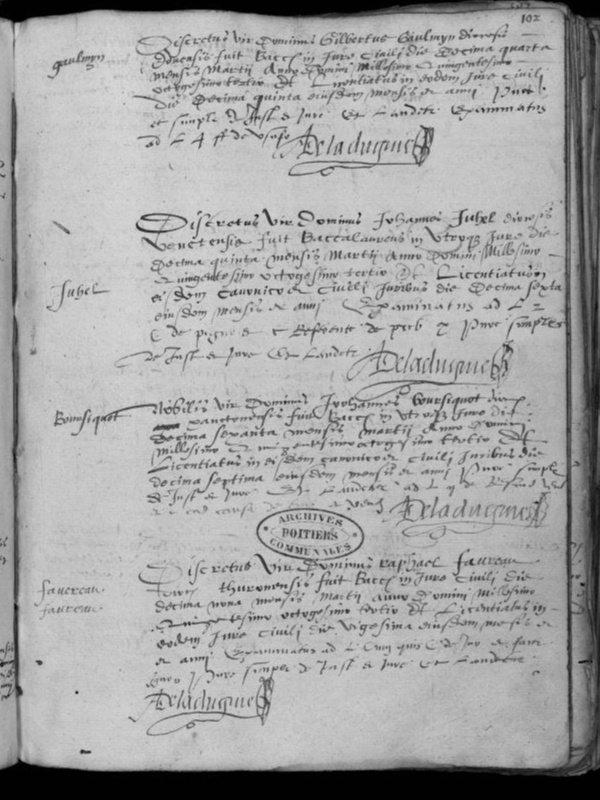 102
gaulmyn
Discretus vir Dominus Gilbertus Gaulmyn diocesis
fuit Bacc in Jure Civili die Decima quarta
mensis Martii Anno Domini Millesimo quingentesimo
octogesimo tertio Et Licentiatus in eodem Jure Civili
die Decima quinta eiusdem mensis et anni
et simpl de Just et Jure Et Laudetur Examinatus
ad L 4 ff de
Deladugnie
Juhel
Discretus Vir Dominus Johannes Juhel diocesis
Venetensis fuit Baccalaureus in Utroq Jure die
Decima quinta mensis Martii Anno Domini Millesimo
quingentesimo octogesimo tertio Et Licentiatus in
eisdem Canonico et Civili Juribus die Decima sexta
eiusdem mensis et anni Examinatus ad L 2
C de et c de simpl
de Just et Jure Et Laudetur
Deladugnie
Boursiquot
Nobilis vir Dominus Johannes Boursiquot
xanctonensis fuit Bacc in Utroq Jure die
decima sexta mensis Martii Anno Domini
Millesimo quingentesimo octogesimo tertio Et
Licentiatus in eisdem canonico et Civili Juribus die
decima septima eiusdem mensis et anni simpl
de Just et Jure Et Laudetur ad L
Deladugnie
ARCHIVES
POITIERS
COMMUNALES
faverean
faureau
Discretus Vir Dominus Raphael faureau
thuronensis fuit Bacc in Jure Civili die
decima nona mensis Martii anno Domini Millesimo
Quingentesimo octogesimo tertio Et Licentiatus in
eodem Jure Civili die Vigesima eiusdem mensis et
et anni Examinatus ad L Cum quis C de Jur et fact
ignor simpl de Just et Jure Et Laudetur
Deladugnie